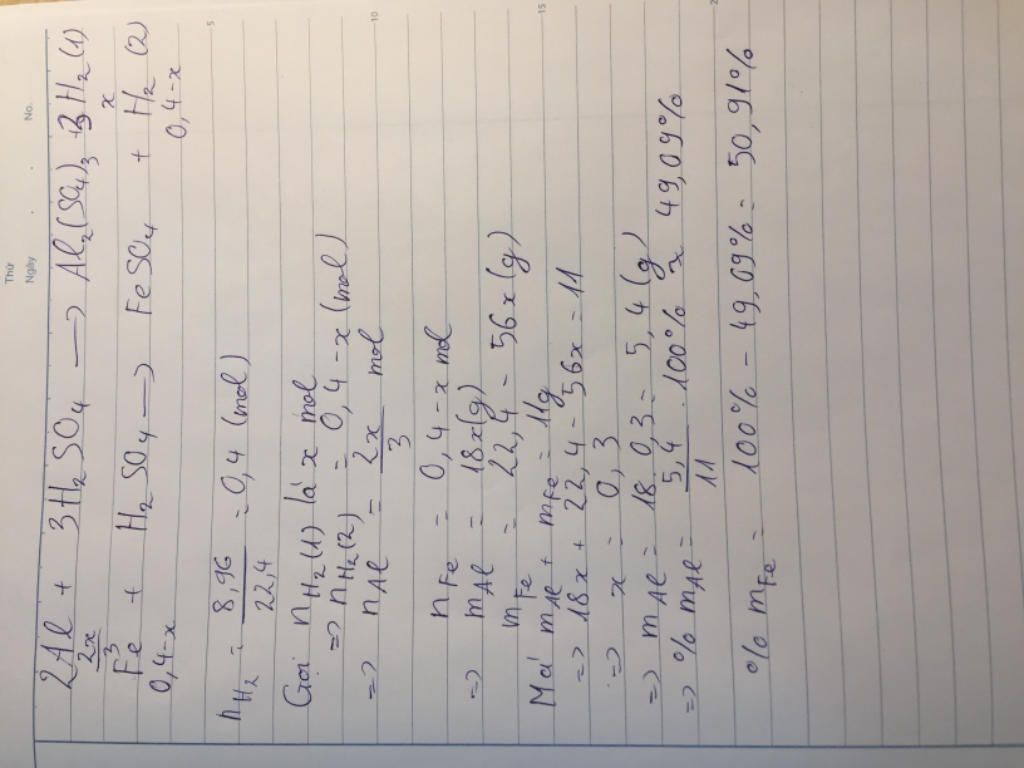 Thứ
Ngày . . No.
2Al + 3H2SO4 → Al2(SO4)3 + 3H2 (1)
2x/3 x
Fe + H2SO4 → FeSO4 + H2 (2)
0,4-x 0,4-x
nH2 = 8,96/22,4 = 0,4 (mol)
5
Gọi nH2(1) là x mol
=> nH2(2) = 0,4 - x (mol)
=> nAl = 2x/3 mol
10
nFe = 0,4 - x mol
=> mAl = 18x(g)
mFe = 22,4 - 56x (g)
Mà mAl + mFe = 11g
15
=> 18x + 22,4 - 56x = 11
=> x = 0,3
=> mAl = 18.0,3 = 5,4 (g)
=> % mAl = 5,4/11 . 100% ≈ 49,09%
% mFe = 100% - 49,09% = 50,91%